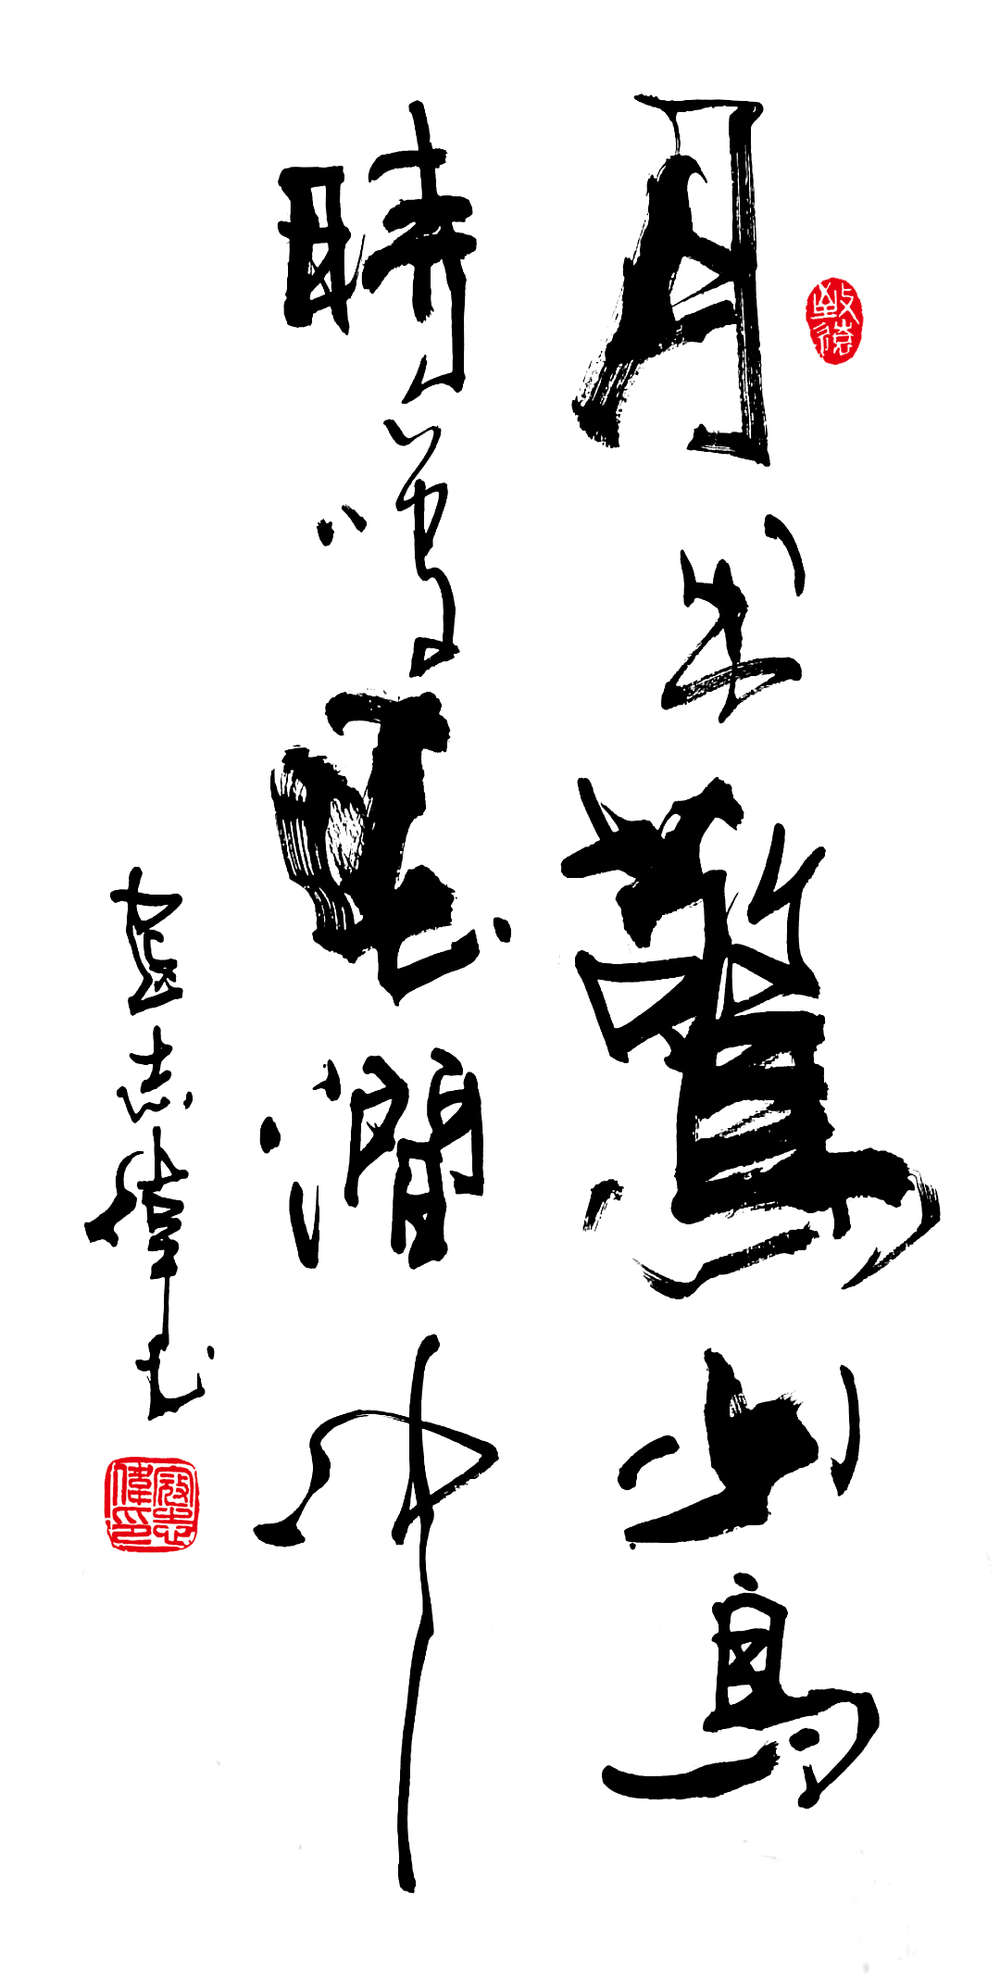 月出驚山鳥
時鳴春澗中
寇志偉書